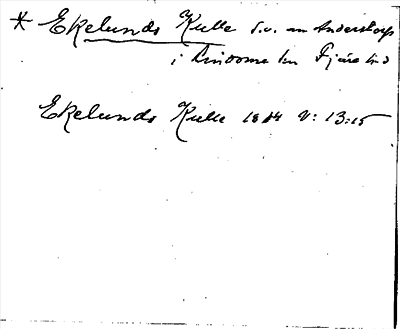 * Ekelunds Kulle s.v. om Anderstorp
i Lindome sn Fjäre hd
Ekelunds Kulle 1884 V: 13:15